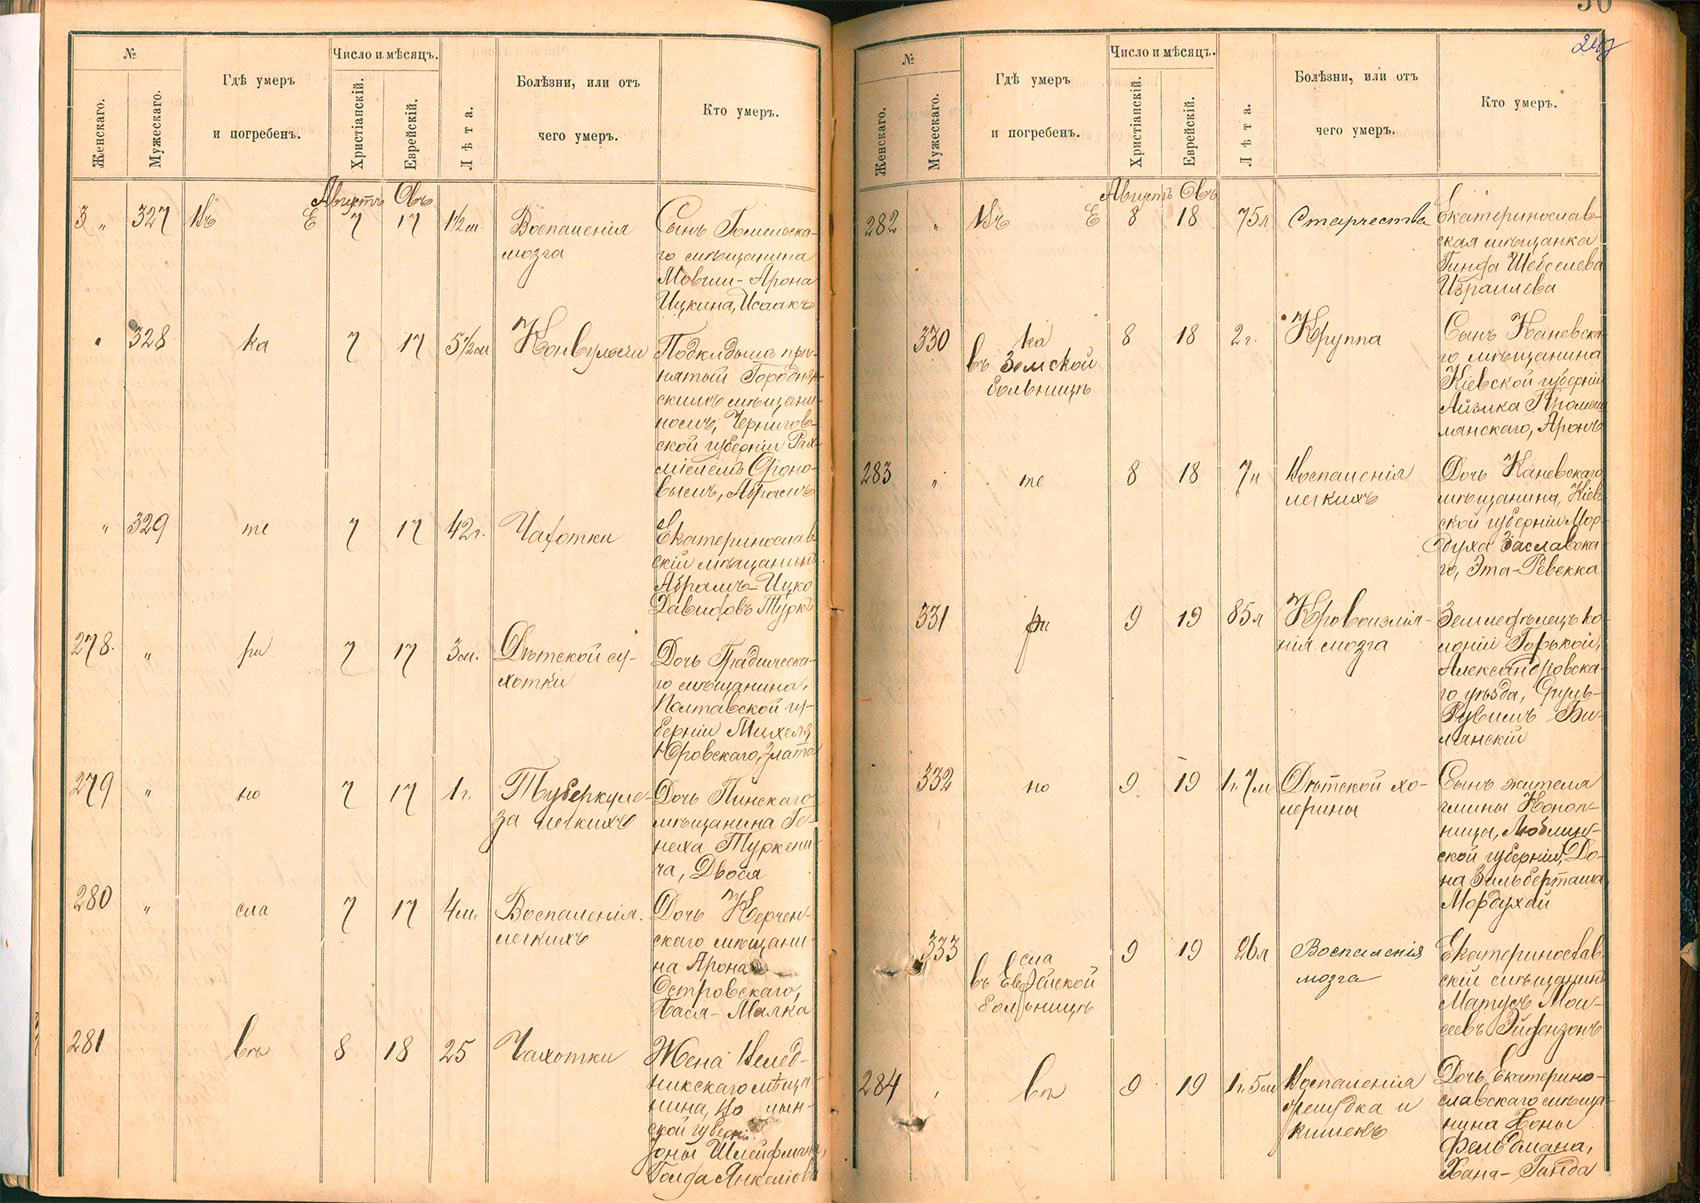 №
Женскаго.
Мужескаго.
Гдѣ умеръ
и погребенъ.
Число и мѣсяцъ.
Христіанскій.
Еврейскій.
Лѣта.
Болѣзни, или отъ
чего умеръ.
Кто умеръ.
Августъ Овъ
3 „ 327 Въ Е 7 17 1½ м. Воспаленія
мозга
Сынъ Гомельска-
го мѣщанина
Мовши-Арона
Ицкина, Исаакъ
„ 328 ка 7 17 5½ м Конвульсіи
Подкидышъ при-
нятый Городнян-
скимъ мѣщани-
номъ, Чернигов-
ской губерніи
вымъ, Абрамъ
„ 329 те 7 17 42 г. Чахотки
Екатеринослав-
скій мѣщанинъ
Абрамъ-Ицко
Давидовъ Турк
278. „ ри 7 17 3 м. Дѣтской су-
хотки
Дочь Градижска-
го мѣщанина,
Полтавской гу-
берніи Михеля
Юровскаго, Злата
279 „ но 7 17 1 г. Туберкуле-
за легкихъ
Дочь Пинскаго
мѣщанина Ге-
неха Туркени-
ча, Двося
280 „ сла 7 17 4 м. Воспаленія
легкихъ
Дочь Керчен-
скаго мѣщани-
на Арона
Островскаго,
Бася-Малка
281 вѣ 8 18 25 Чахотки
Жена Велед-
никскаго мѣща-
нина, Во лын-
ской губерніи
Іоны Шлейфмана,
Голда Янкелюва
№
Женскаго.
Мужескаго.
Гдѣ умеръ
и погребенъ.
Число и мѣсяцъ.
Христіанскій.
Еврейскій.
Лѣта.
Болѣзни, или отъ
чего умеръ.
Кто умеръ.
Августъ Овъ
282 „ Въ Е 8 18 75 л Старчества
Екатеринослав-
ская мѣщанка
Гинда Шевелева
Израилева
330 ка
въ Земской
больницѣ
8 18 2 г. Круппа
Сынъ Каневска-
го мѣщанина
Кіевской губерніи
Айзика
манскаго, Аронъ
283 „ те 8 18 7 н Воспаленія
легкихъ
Дочь Каневскаго
мѣщанина, Кіев-
ской губерніи Мор-
духа Заславска-
го, Эта-Ревекка
331 ри 9 19 85 л Кровоизлія-
нія мозга
Земледѣлецъ ко-
лоніи Горькой,
Александровска-
го уѣзда, Сруль-
Рувимъ Би-
лянскій
332 но 9 19 1 г. 7 м Дѣтской хо-
лерины
Сынъ жителя
гмины Коноп-
ницы, Люблин-
ской губерніи, До-
на Зильберташа
Мордухай
333 сла
въ Еврейской
больницѣ
9 19 26 л Воспаленія
мозга
Екатеринослав-
скій мѣщанинъ
Матусъ Мои-
сеевъ Эйдензонъ
284 „ вѣ 9 19 1 г. 5 м Воспаленія
желудка и
кишекъ
Дочь Екатерино-
славскаго мѣща-
нина Хоны
Фельдмана,
Хана-Гинда